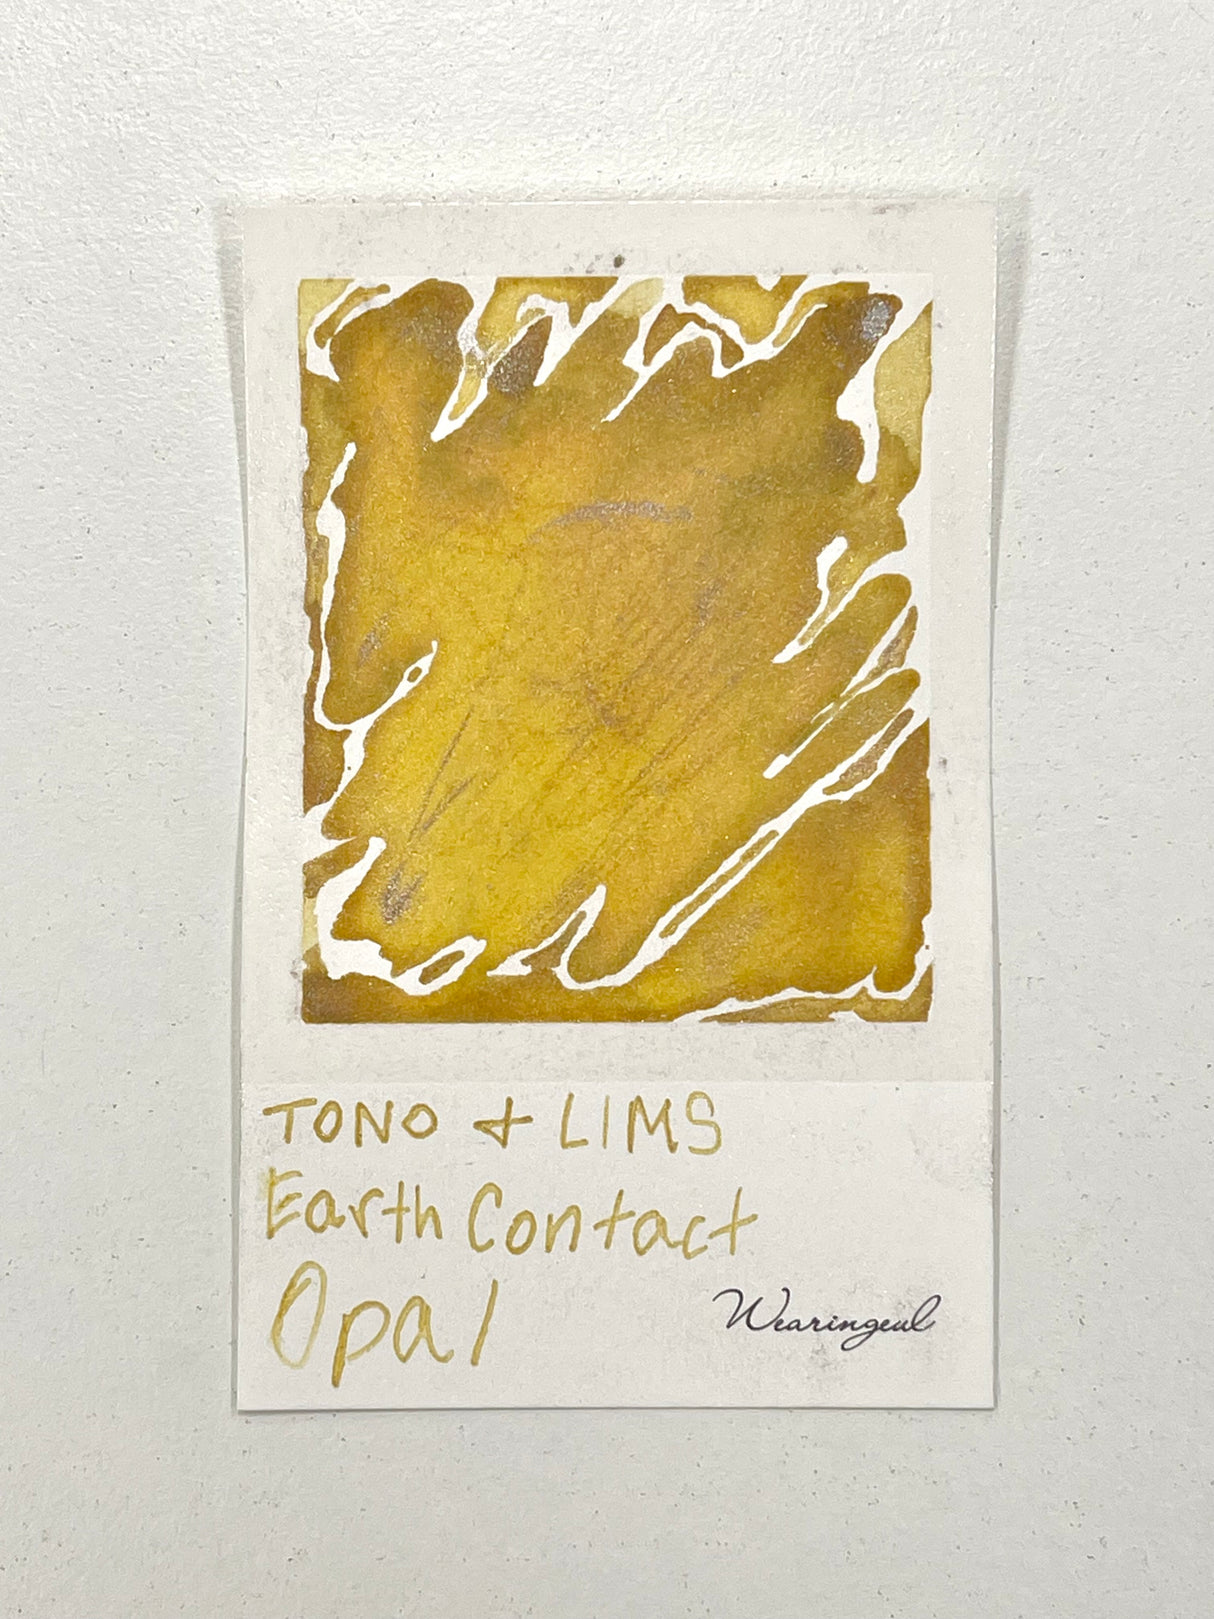 TONO & LIMS
Earth Contact
Opal
Wearingeul